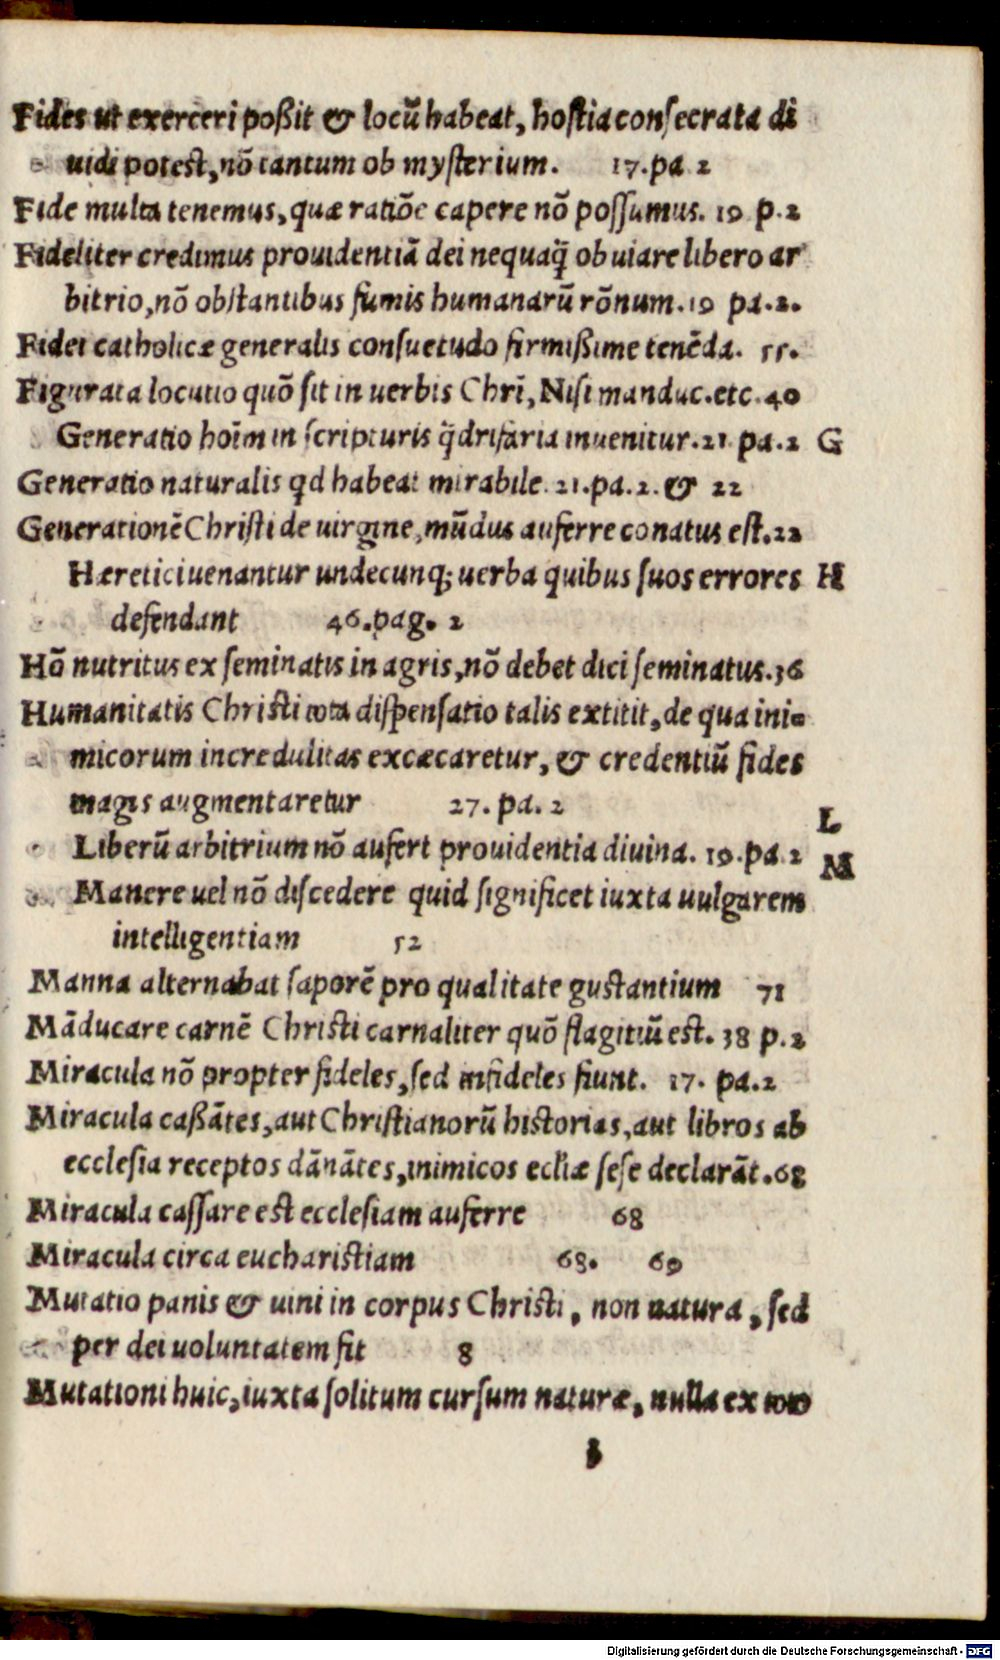 Fides ut exerceri poßit & locũ habeat, hostia consecrata di
uidi potest, nõ tantum ob mysterium. 17.pa 2
Fide multa tenemus, quæ ratiõe capere nõ possumus. 19 p.2
Fideliter credimus prouidentiã dei nequaq̃ obuiare libero ar
bitrio, nõ obstantibus fumis humanarũ rõnum. 19 pa.2.
Fidei catholicæ generalis consuetudo firmißime tenẽda. 55.
Figurata locutio quõ sit in uerbis Chrĩ, Nisi manduc.etc.40
Generatio hoĩm in scripturis q̃drifaria inuenitur.21 pa.2 G
Generatio naturalis qd habeat mirabile. 21.pa.2. & 22
Generationẽ Christi de uirgine, mũdus auferre conatus est.22
Hæretici uenantur undecunq; uerba quibus suos errores H
defendant 46.pag. 2
Hõ nutritus ex seminatis in agris, nõ debet dici seminatus.36
Humanitatis Christi tota dispensatio talis extitit, de qua ini=
micorum incredulitas excæcaretur, & credentiũ fides
magis augmentaretur 27. pa. 2
Liberũ arbitrium nõ aufert prouidentia diuina. 19.pa 2 L
Manere uel nõ discedere quid significet iuxta uulgarem M
intelligentiam 52
Manna alternabat saporẽ pro qualitate gustantium 71
Mãducare carnẽ Christi carnaliter quõ flagitiũ est. 38 p.2
Miracula nõ propter fideles, sed infideles fiunt. 17. pa.2
Miracula caßãtes, aut Christianorũ historias, aut libros ab
ecclesia receptos dãnãtes, inimicos eccl̃iæ sese declarãt.68
Miracula cassare est ecclesiam auferre 68
Miracula circa eucharistiam 68. 69
Mutatio panis & uini in corpus Christi, non natura, sed
per dei uoluntatem fit 8
Mutationi huic, iuxta solitum cursum naturæ, nulla ex toto
b
Digitalisierung gefördert durch die Deutsche Forschungsgemeinschaft - DFG